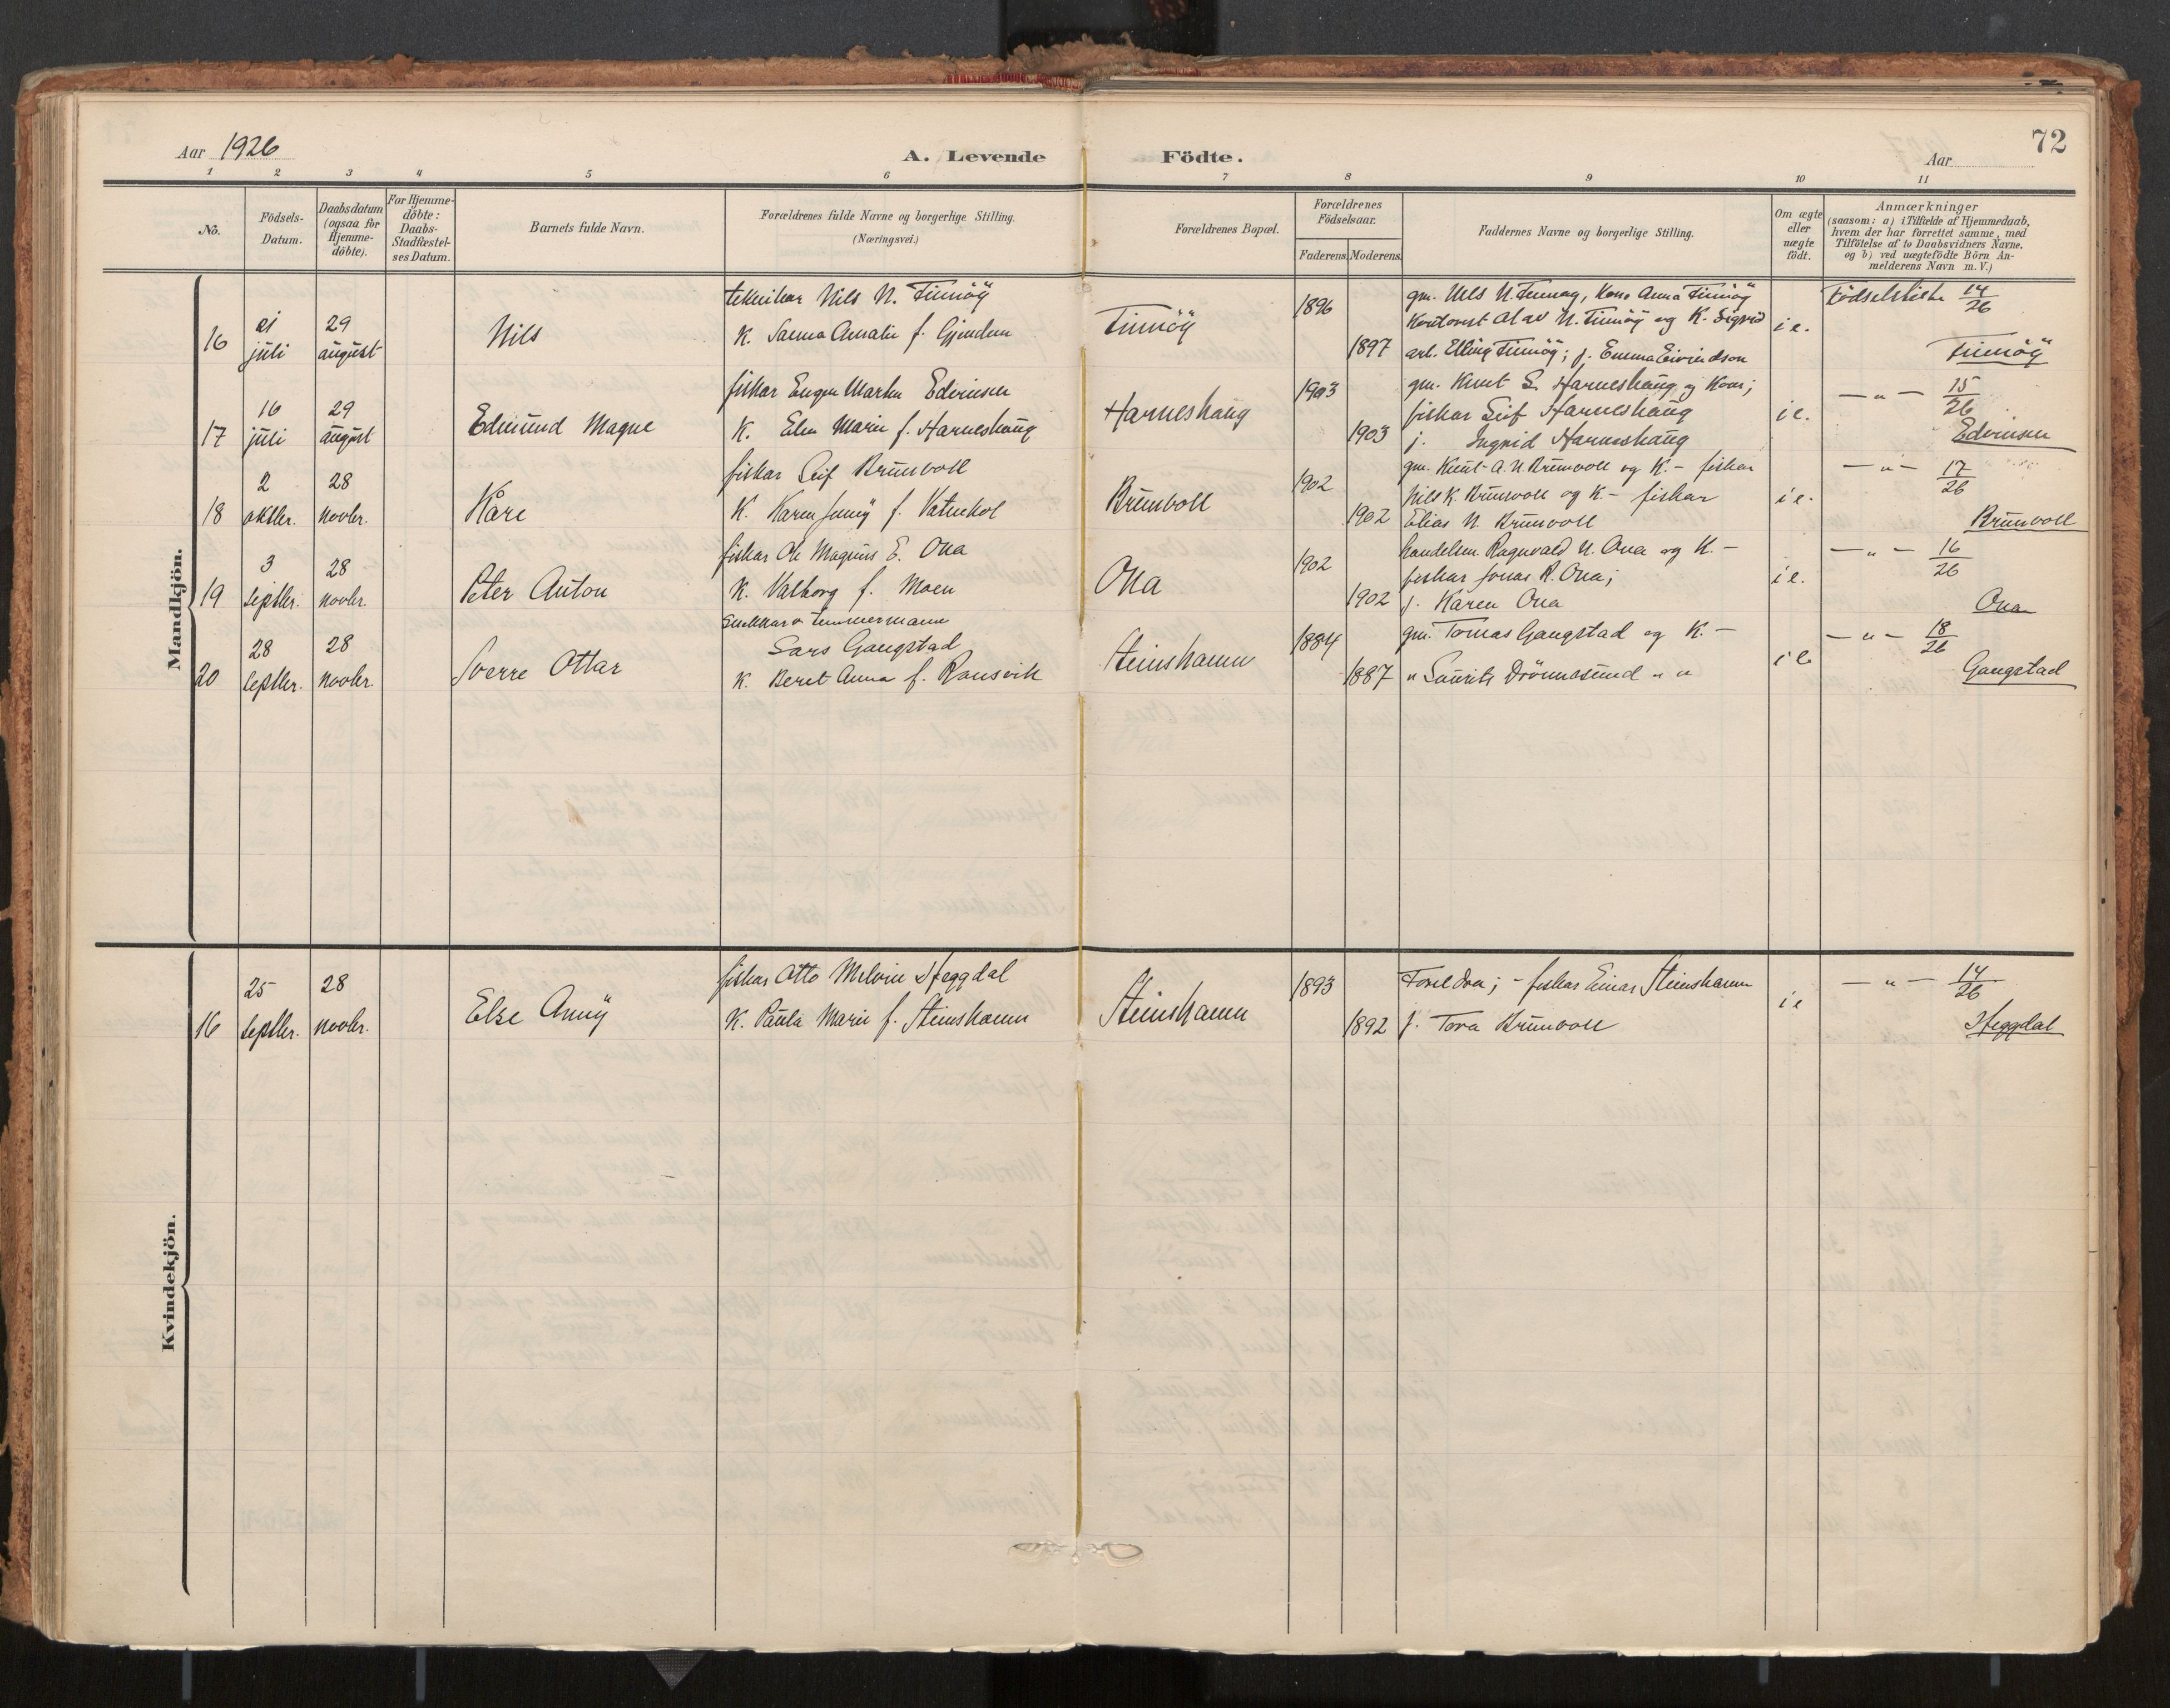 72
Aar 1926
A. Levende Födte.
Aar
1 2 3 4 5 6 7 8 9 10 11
No.
Födsels-
Datum.
Daabsdatum
(ogsaa for
Hjemme-
döbte).
For Hjemme-
döbte:
Daabs-
Stadfæstel-
ses Datum.
Barnets fulde Navn.
Forældrenes fulde Navne og borgerlige Stilling.
(Næringsvei.)
Forældrenes Bopæl.
Forældrenes
Födselsaar.
Faderens. Moderens.
Faddernes Navne og borgerlige Stilling.
Om ægte
eller
uægte
födt.
Anmærkninger
(saasom: a) i Tilfælde af Hjemmedaab,
hvem der har forrettet samme, med
Tilföielse af to Daabsvidners Navne,
og b) ved uægtefödte Börn An-
melderens Navn m. V.)
Mandkjön.
16
21
juli
29
august
Nils
teknikar Nils N. Finnöy
K. Sanna Amalie f. Gjendem
Finnöy
1896
1897
gm. Nils N. Finnöy, Kona Anna Finnöy
Kontorist Olav N. Finnöy og K. Sigrid
arb. Elling Finnöy; j. Emma Eivindson
i e.
Födselsliste 14/26
Finnöy
17
16
juli
29
august
Edmund Magne
fiskar Eugen Marten Edvinsen
K. Elen Marie f. Harneshaug
Harneshaug
1903
1903
gm. Knut L. Harneshaug og Kona;
fiskar Leif Harneshaug
j. Ingrid Harneshaug
i e.
— " — 15/26
Edvinsen
18
2
oktbr.
28
novbr.
Kåre
fiskar Leif Brunvoll
K. Karen Jenny f. Vatnehol
Brunvoll
1902
1902
gm. Knut A. N. Brunvoll og K. - fiskar
Nils K. Brunvoll og K - fiskar
Elias N. Brunvoll
i e.
— " — 17/26
Brunvoll
19
3
septbr.
28
novbr.
Peter Anton
fiskar Ole Magnus E. Ona
K. Valborg f. Moen
Ona
1902
1902
handelsm. Ragnvald N. Ona og K. -
fiskar Jonas R. Ona;
j. Karen Ona
i e.
— " — 16/26
Ona
20
28
septbr.
28
novbr.
Sverre Ottar
Snekkar o tummermann
Lars Gangstad
K. Beret Anna f. Ramsvik
Steinshamn
1884
1887
gm. Tomas Gangstad og K. -
" Laurits Drönnesund " "
i e
— " — 18/26
Gangstad
Kvindekjön.
16
25
septbr.
28
novbr.
Else Anny
fiskar Otto Melvin Heggdal
K. Paula Marie f. Steinshamn
Steinshamn
1893
1892
Foreldra; - fiskar Einar Steinshamn
j. Tora Brunvoll
i e
— " — 14/26
Heggdal